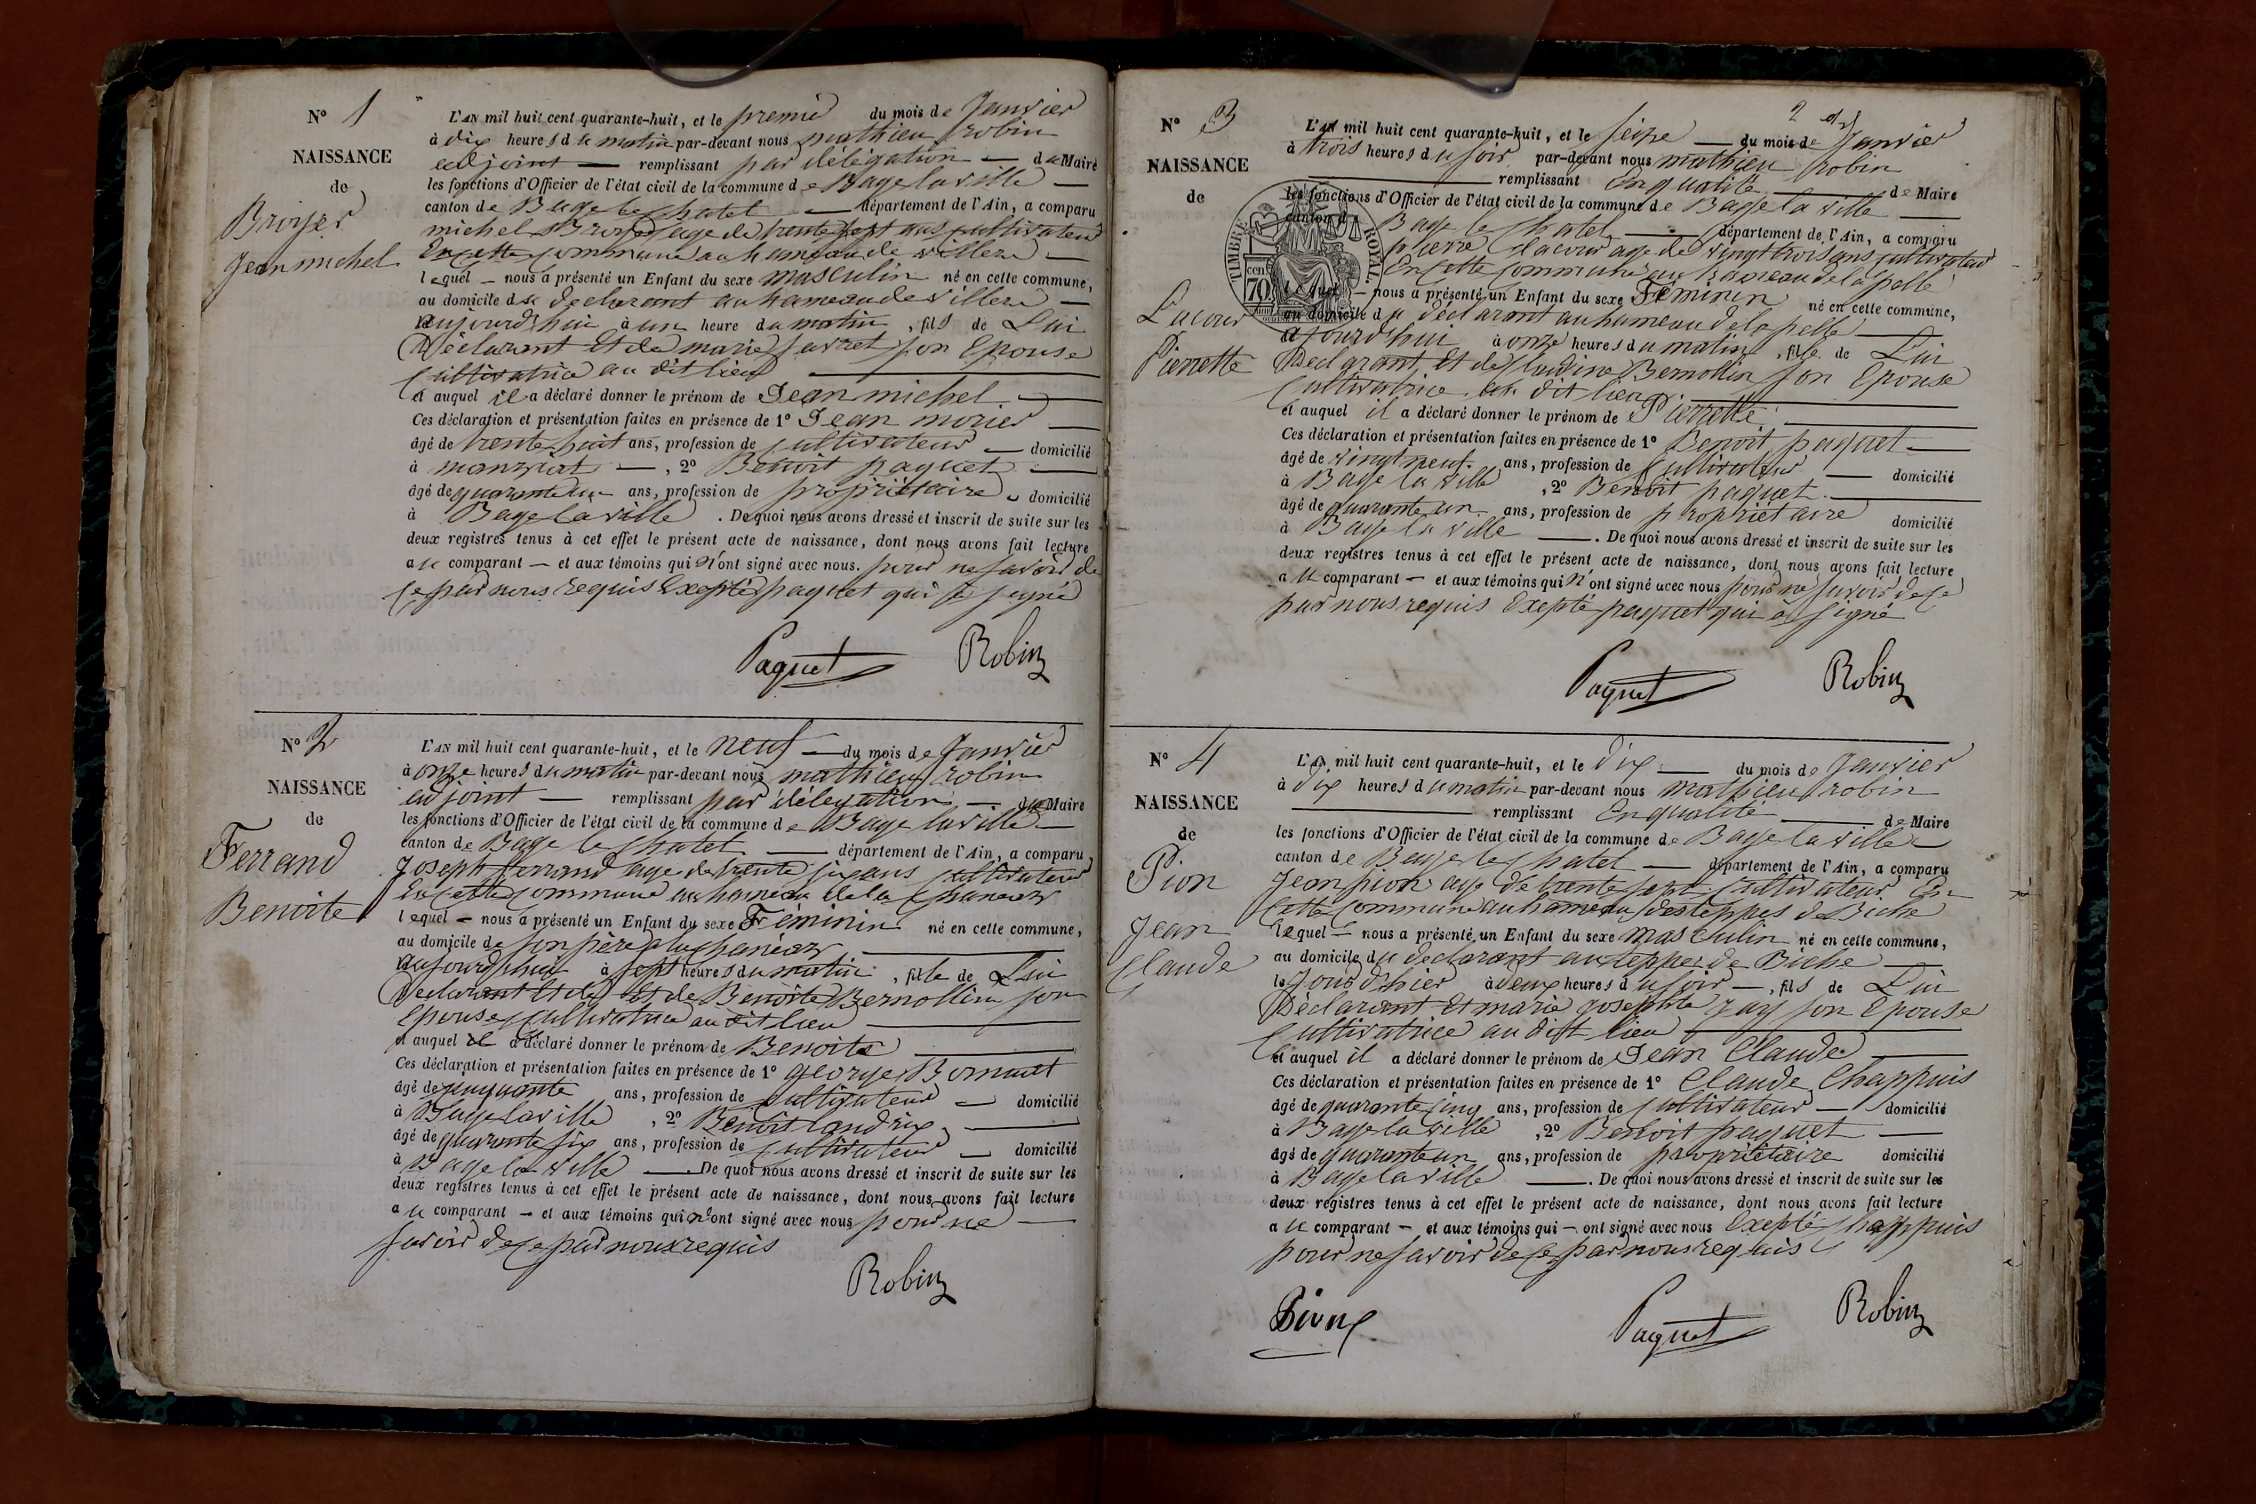 N° 1
NAISSANCE
de
Broyer
Jean michel
L'AN mil huit cent quarante-huit, et le premier du mois de Janvier
à dix heures du matin par-devant nous mathieu robin
adjoint — remplissant par délégation — du Maire
les fonctions d'Officier de l'état civil de la commune de Bage la ville —
canton de Bage le Chatel — département de l'Ain, a comparu
michel Broyer age de trente sept ans cultivateur
En cette commune au hameau de villere —
lequel — nous a présenté un Enfant du sexe masculin né en cette commune,
au domicile du declarant au hameau de villere —
aujourd'hui à un heure du matin, fils de Lui
Declarant Et de marie favret son Epouse
Cultivatrice au dit lieu
et auquel il a déclaré donner le prénom de Jean michel —
Ces déclaration et présentation faites en présence de 1° Jean morier —
âgé de trente huit ans, profession de cultivateur — domicilié
à manziat —, 2° Benoit paquet —
âgé de quarante un ans, profession de propriétaire domicilié
à Bage la ville. De quoi nous avons dressé et inscrit de suite sur les
deux registres tenus à cet effet le présent acte de naissance, dont nous avons fait lecture
au comparant — et aux témoins qui n'ont signé avec nous. pour ne savoir de
Ce par nous requis Excepté paquet qui a signé
Paquet Robin
N° 2
NAISSANCE
de
Ferrand
Benoite
L'AN mil huit cent quarante-huit, et le neuf — du mois de Janvier
à onze heures du matin par-devant nous mathieu robin
adjoint — remplissant par délégation — du Maire
les fonctions d'Officier de l'état civil de la commune de Bage la ville —
canton de Bage le Chatel — département de l'Ain, a comparu
Joseph ferrand age de trente six ans cultivateur
En cette commune au hameau de la
lequel — nous a présenté un Enfant du sexe Féminin né en cette commune,
au domicile de son père
aujourd'hui à sept heures du matin, fille de Lui
Declarant Et de Et de Benoite Bernollin son
Epouse Cultivatrice au dit lieu —
et auquel il a déclaré donner le prénom de Benoite —
Ces déclaration et présentation faites en présence de 1° George Bonnet
âgé de cinquante ans, profession de Cultivateur — domicilié
à Bage la ville, 2° Benoit Landrix —
âgé de quarante six ans, profession de Cultivateur — domicilié
à Bage la ville —. De quoi nous avons dressé et inscrit de suite sur les
deux registres tenus à cet effet le présent acte de naissance, dont nous avons fait lecture
au comparant — et aux témoins qui n'ont signé avec nous pour ne —
savoir de ce par nous requis
Robin
2
N° 3
NAISSANCE
de
Lacour
Pierrette
TIMBRE ROYAL
70 cen
L'AN mil huit cent quarante-huit, et le seize — du mois de Janvier
à trois heures du soir par-devant nous mathieu robin
— remplissant En qualité — de Maire
les fonctions d'Officier de l'état civil de la commune de Bage la ville —
canton de Bage le Chatel — département de l'Ain, a comparu
pierre Lacour age de vingt trois ans cultivateur
En cette commune au hameau de lapelle
lequel — nous a présenté un Enfant du sexe Féminin né en cette commune,
au domicile du déclarant au hameau de lapelle —
ajourd'hui à onze heures du matin, fille de Lui
Declarant Et de Claudine Bernollin son Epouse
Cultivatrice au dit lieu —
et auquel il a déclaré donner le prénom de Pierrette —
Ces déclaration et présentation faites en présence de 1° Benoit paquet —
âgé de vingt neuf ans, profession de Cultivateur — domicilié
à Bage la ville, 2° Benoit paquet —
âgé de quarante un ans, profession de propriétaire domicilié
à Bage la ville —. De quoi nous avons dressé et inscrit de suite sur les
deux registres tenus à cet effet le présent acte de naissance, dont nous avons fait lecture
au comparant — et aux témoins qui n'ont signé avec nous pour ne savoir de Ce
par nous requis Excepté paquet qui a signé
Paquet Robin
N° 4
NAISSANCE
de
Pion
Jean
Claude
L'AN mil huit cent quarante-huit, et le dix — du mois de Janvier
à dix heures du matin par-devant nous mathieu robin
— remplissant En qualité — de Maire
les fonctions d'Officier de l'état civil de la commune de Bage la ville —
canton de Bage le Chatel — département de l'Ain, a comparu
Jean pion age de trente sept Cultivateur En
Cette commune au hameau des teppes de Biche
lequel — nous a présenté un Enfant du sexe masculin né en cette commune,
au domicile du declarant aux teppes de Biche —
le Jour d'hier à deux heures du soir —, fils de Lui
Déclarant Et marie Josephte ray son Epouse
Cultivatrice au dit lieu —
et auquel il a déclaré donner le prénom de Jean Claude —
Ces déclaration et présentation faites en présence de 1° Claude Chappuis
âgé de quarante cinq ans, profession de Cultivateur — domicilié
à Bage la ville, 2° Benoit paquet —
âgé de quarante un ans, profession de propriétaire domicilié
à Bage la ville —. De quoi nous avons dressé et inscrit de suite sur les
deux registres tenus à cet effet le présent acte de naissance, dont nous avons fait lecture
au comparant — et aux témoins qui — ont signé avec nous Excepté Chappuis
pour ne savoir de Ce par nous requis
Pion Paquet Robin